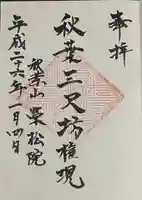 奉拝
秋葉三尺坊権現
秋葉山 栗松院
平成二十六年一月四日